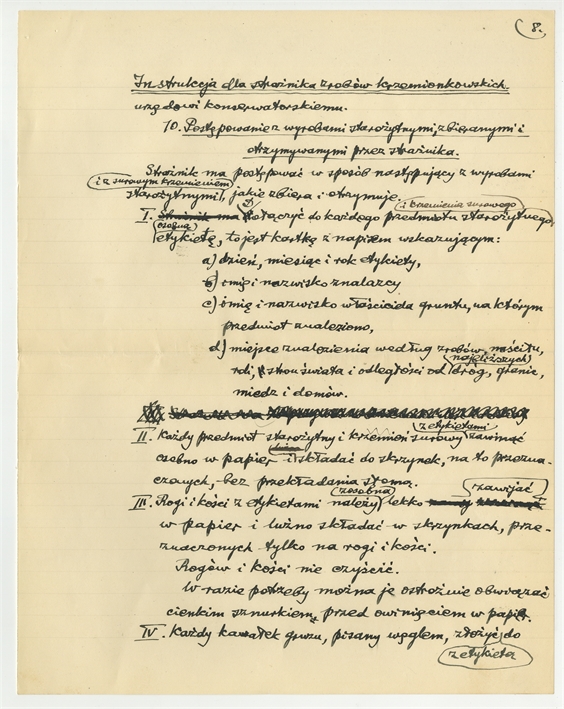 8.
Instrukcja dla strażnika zrobów krzemionkowskich.
urzędowi konserwatorskiemu.
10. Postępowanie z wyrobami starożytnymi, zbieranymi i
otrzymywanymi przez strażnika.
Strażnik ma postępować w sposób następujący z wyrobami
i z surowym krzemieniem
starożytnymi, jakie zbiera i otrzymuje.
i krzemienia surowego
I. Strażnik ma Dołączyć do każdego przedmiotu starożytnego
osobną
etykietę, to jest kartkę z napisem wskazującym:
a) dzień, miesiąc i rok etykiety,
b) imię i nazwisko znalazcy
c) imię i nazwisko właściciela gruntu, na którym
przedmiot znaleziono,
d) miejsce znalezienia według zrobów,
najbliższych
roli, stron świata i odległości od dróg, granic,
miedz i domów.
z etykietami
II. Każdy przedmiot starożytny i krzemień surowy zawinąć
osobno w papier i składać do skrzynek, na to przezna-
czonych, bez przekładania słomą.
zosobna
zawijać
III. Rogi i kości z etykietami należy lekko
w papier i luźno składać w skrzynkach, prze-
znaczonych tylko na rogi i kości.
Rogów i kości nie czyścić.
W razie potrzeby można je ostrożnie obwiązać
cienkim sznurkiem, przed owinięciem w papier.
IV. Każdy kawałek gruzu, pisany węglem, złożyć do
z etykietą